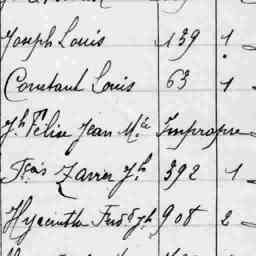 Joseph Louis 139 1
Constant Louis 63 1
Jh Félix Jean Mie Impropre
Fçois Xavier Jh 392 1
Hyacinthe Ferd Jh 908 2